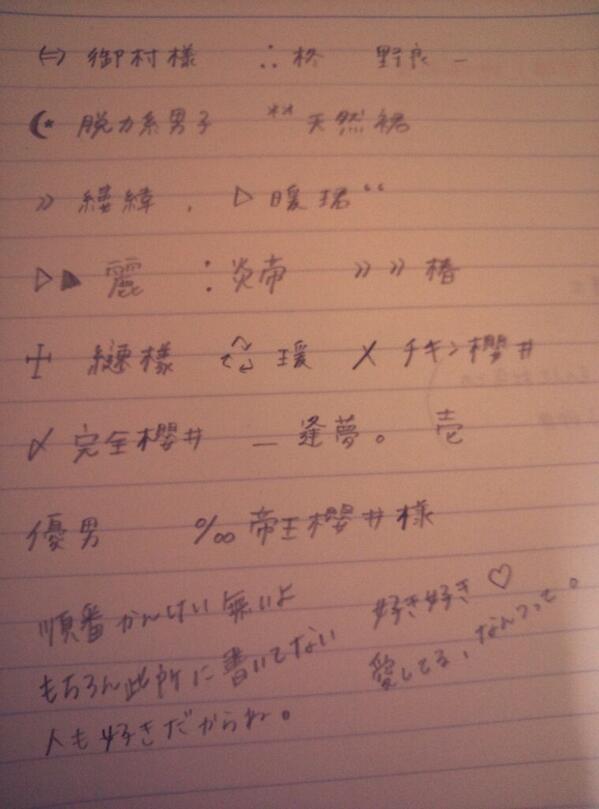 ⇔ 御村様 ∴柊 野良 –
☾* 脱力系男子 ** 天然裙
» 縷緯 . ▷ 暖珺“
▷▶ 麗 : 炎帝 » » 椿
☩ 練様 ♺ 瑗 〆 チキン櫻井
〆 完全櫻井 _ 逢夢。 壱
優男 ‰ 帝王櫻井様
順番かんけい無いよ 好き好き♡
もちろん此所に書いてない 愛してる、なんつって。
人も好きだからね。